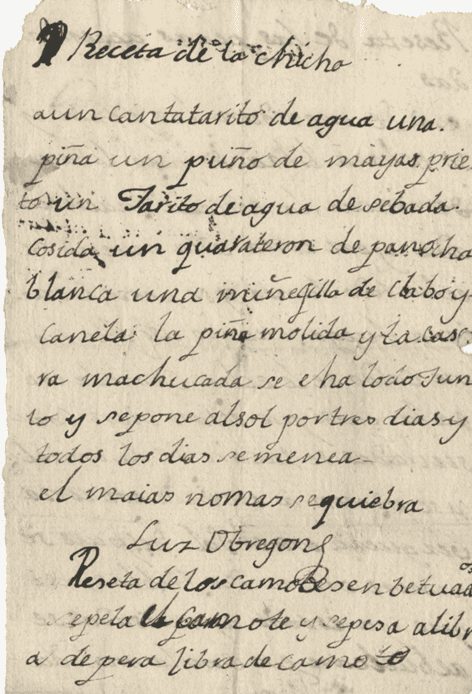 Receta de la chicha
a un cantatarito de agua una.
piña un puño de mayas prie
to un Jarito de agua de sebada
cosida un quarateron de panocha
blanca una muñegilla de clabo y
canela la piña molida y la cas
ra machucada se eha todo Jun
to y sepone al sol por tres dias y
todos los dias se menea
el maias nomas se quiebra
Luz Obregon
Reseta de los camotes en betuados
se pela el camote y se pesa a libr
a de pera libra de camote